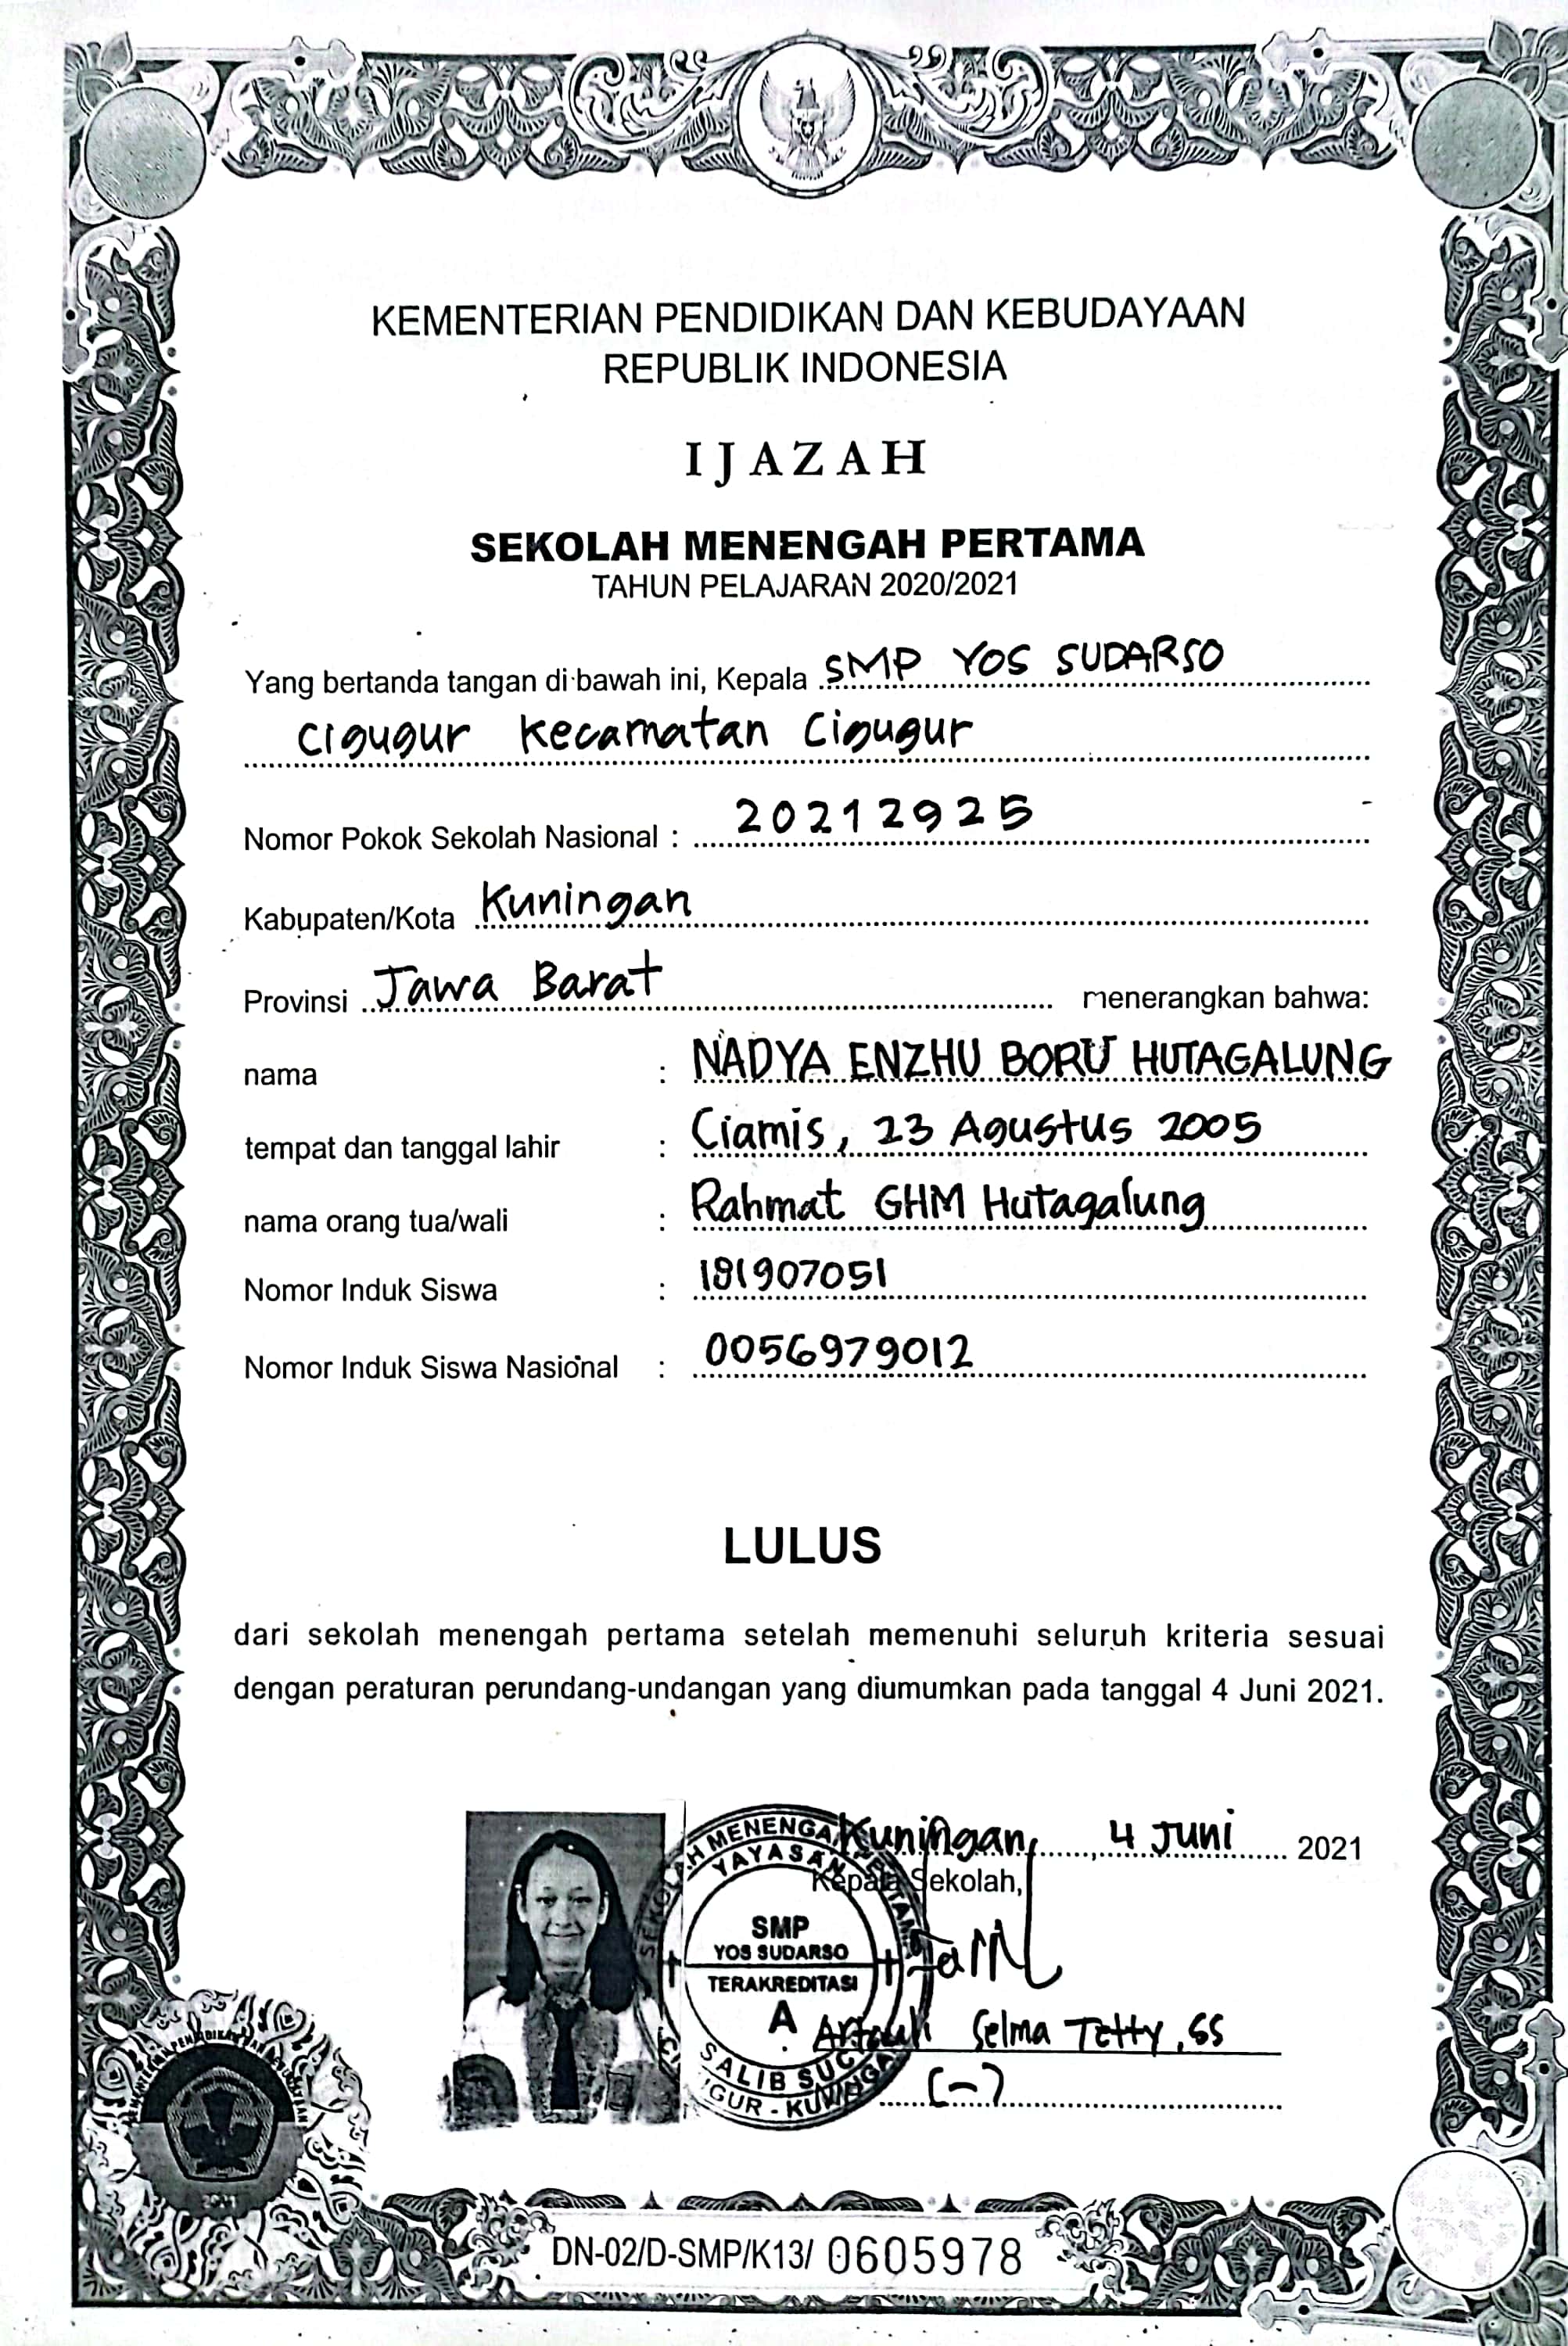 KEMENTERIAN PENDIDIKAN DAN KEBUDAYAAN
REPUBLIK INDONESIA
IJAZAH
SEKOLAH MENENGAH PERTAMA
TAHUN PELAJARAN 2020/2021
Yang bertanda tangan di bawah ini, Kepala SMP YOS SUDARSO
Cigugur Kecamatan Cigugur
Nomor Pokok Sekolah Nasional : 20212925
Kabupaten/Kota Kuningan
Provinsi Jawa Barat menerangkan bahwa:
nama : NADYA ENZHU BORU HUTAGALUNG
tempat dan tanggal lahir : Ciamis, 23 Agustus 2005
nama orang tua/wali : Rahmat GHM Hutagalung
Nomor Induk Siswa : 181907051
Nomor Induk Siswa Nasional : 0056979012
LULUS
dari sekolah menengah pertama setelah memenuhi seluruh kriteria sesuai
dengan peraturan perundang-undangan yang diumumkan pada tanggal 4 Juni 2021.
Kuningan, 4 Juni 2021
Kepala Sekolah,
SEKOLAH MENENGAH PERTAMA
YAYASAN
SMP
YOS SUDARSO
TERAKREDITASI
A
SALIB SUCI
Selma Tetty, SS
(-)
DN-02/D-SMP/K13/ 0605978